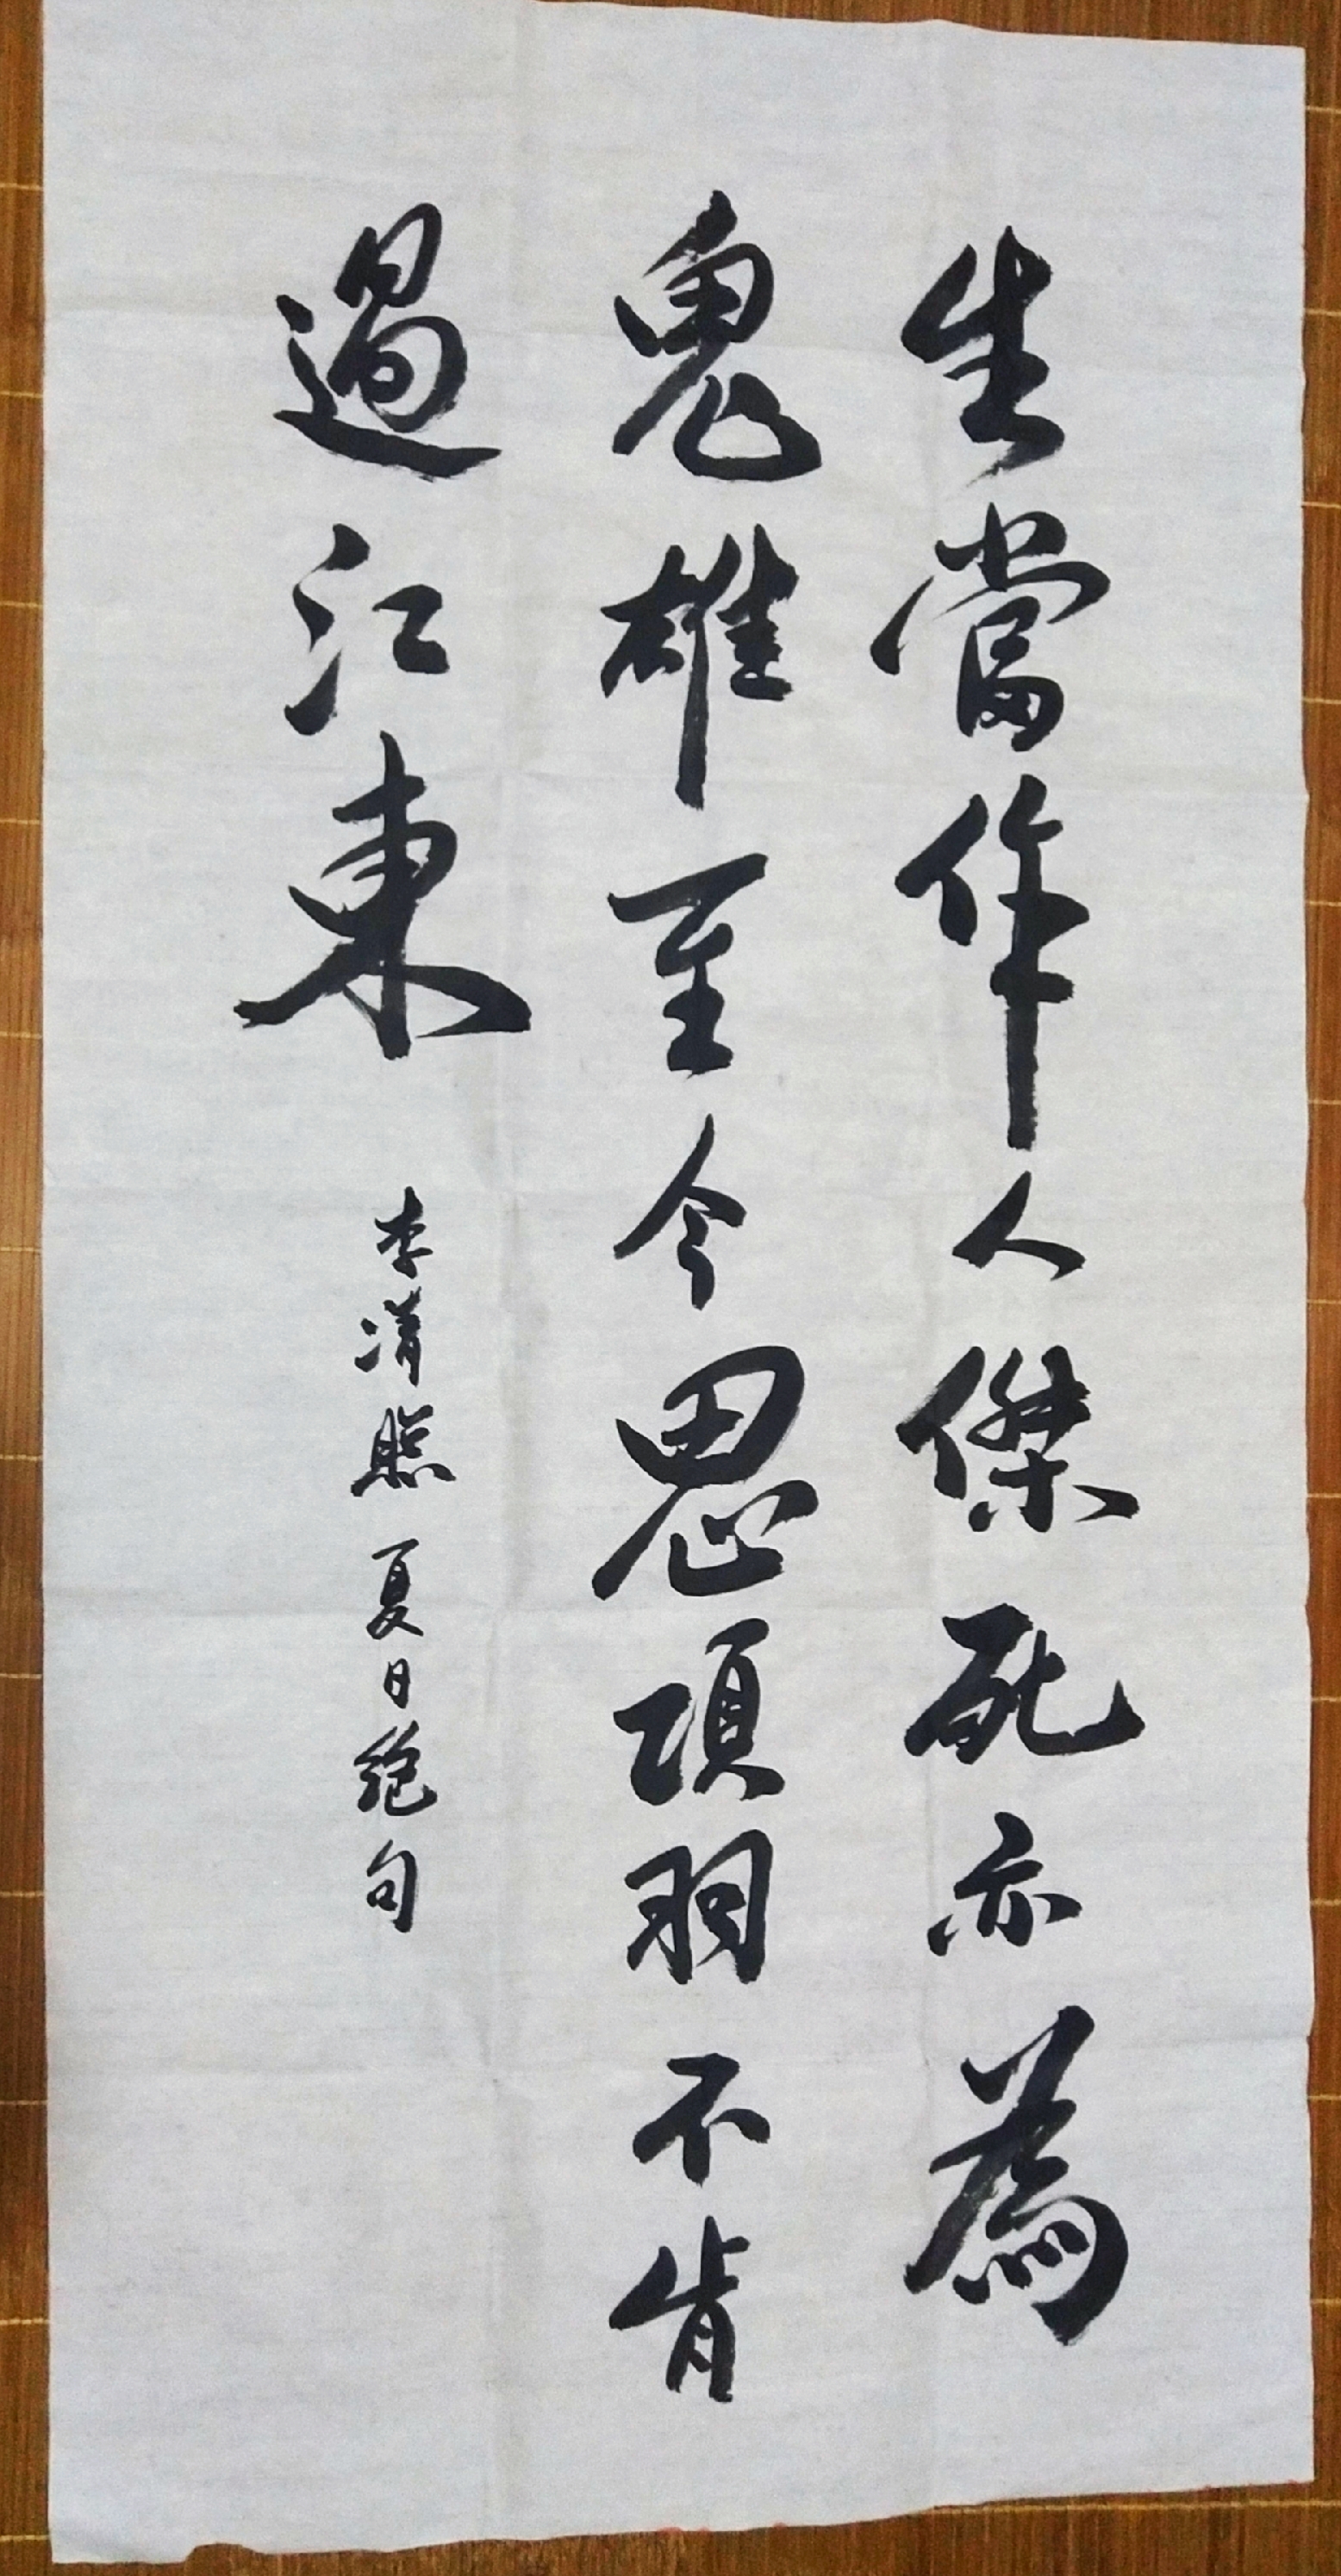 生當作人傑死亦為
鬼雄至今思項羽不肯
過江東
李清照夏日絕句